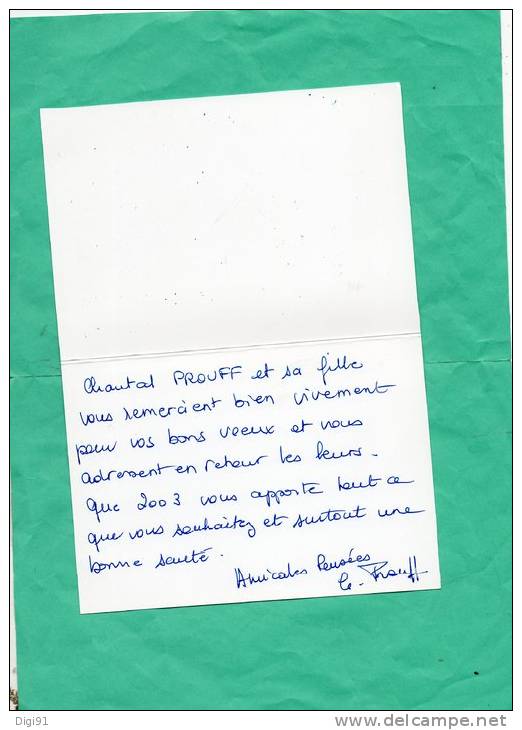 Chantal PROUFF et sa fille
vous remercient bien vivement
pour vos bons voeux et vous
adressent en retour les leurs.
Que 2003 vous apporte tout ce
que vous souhaitez et surtout une
bonne santé.
Amicales Pensées
C. Prouff
Digi91
delcampe.net